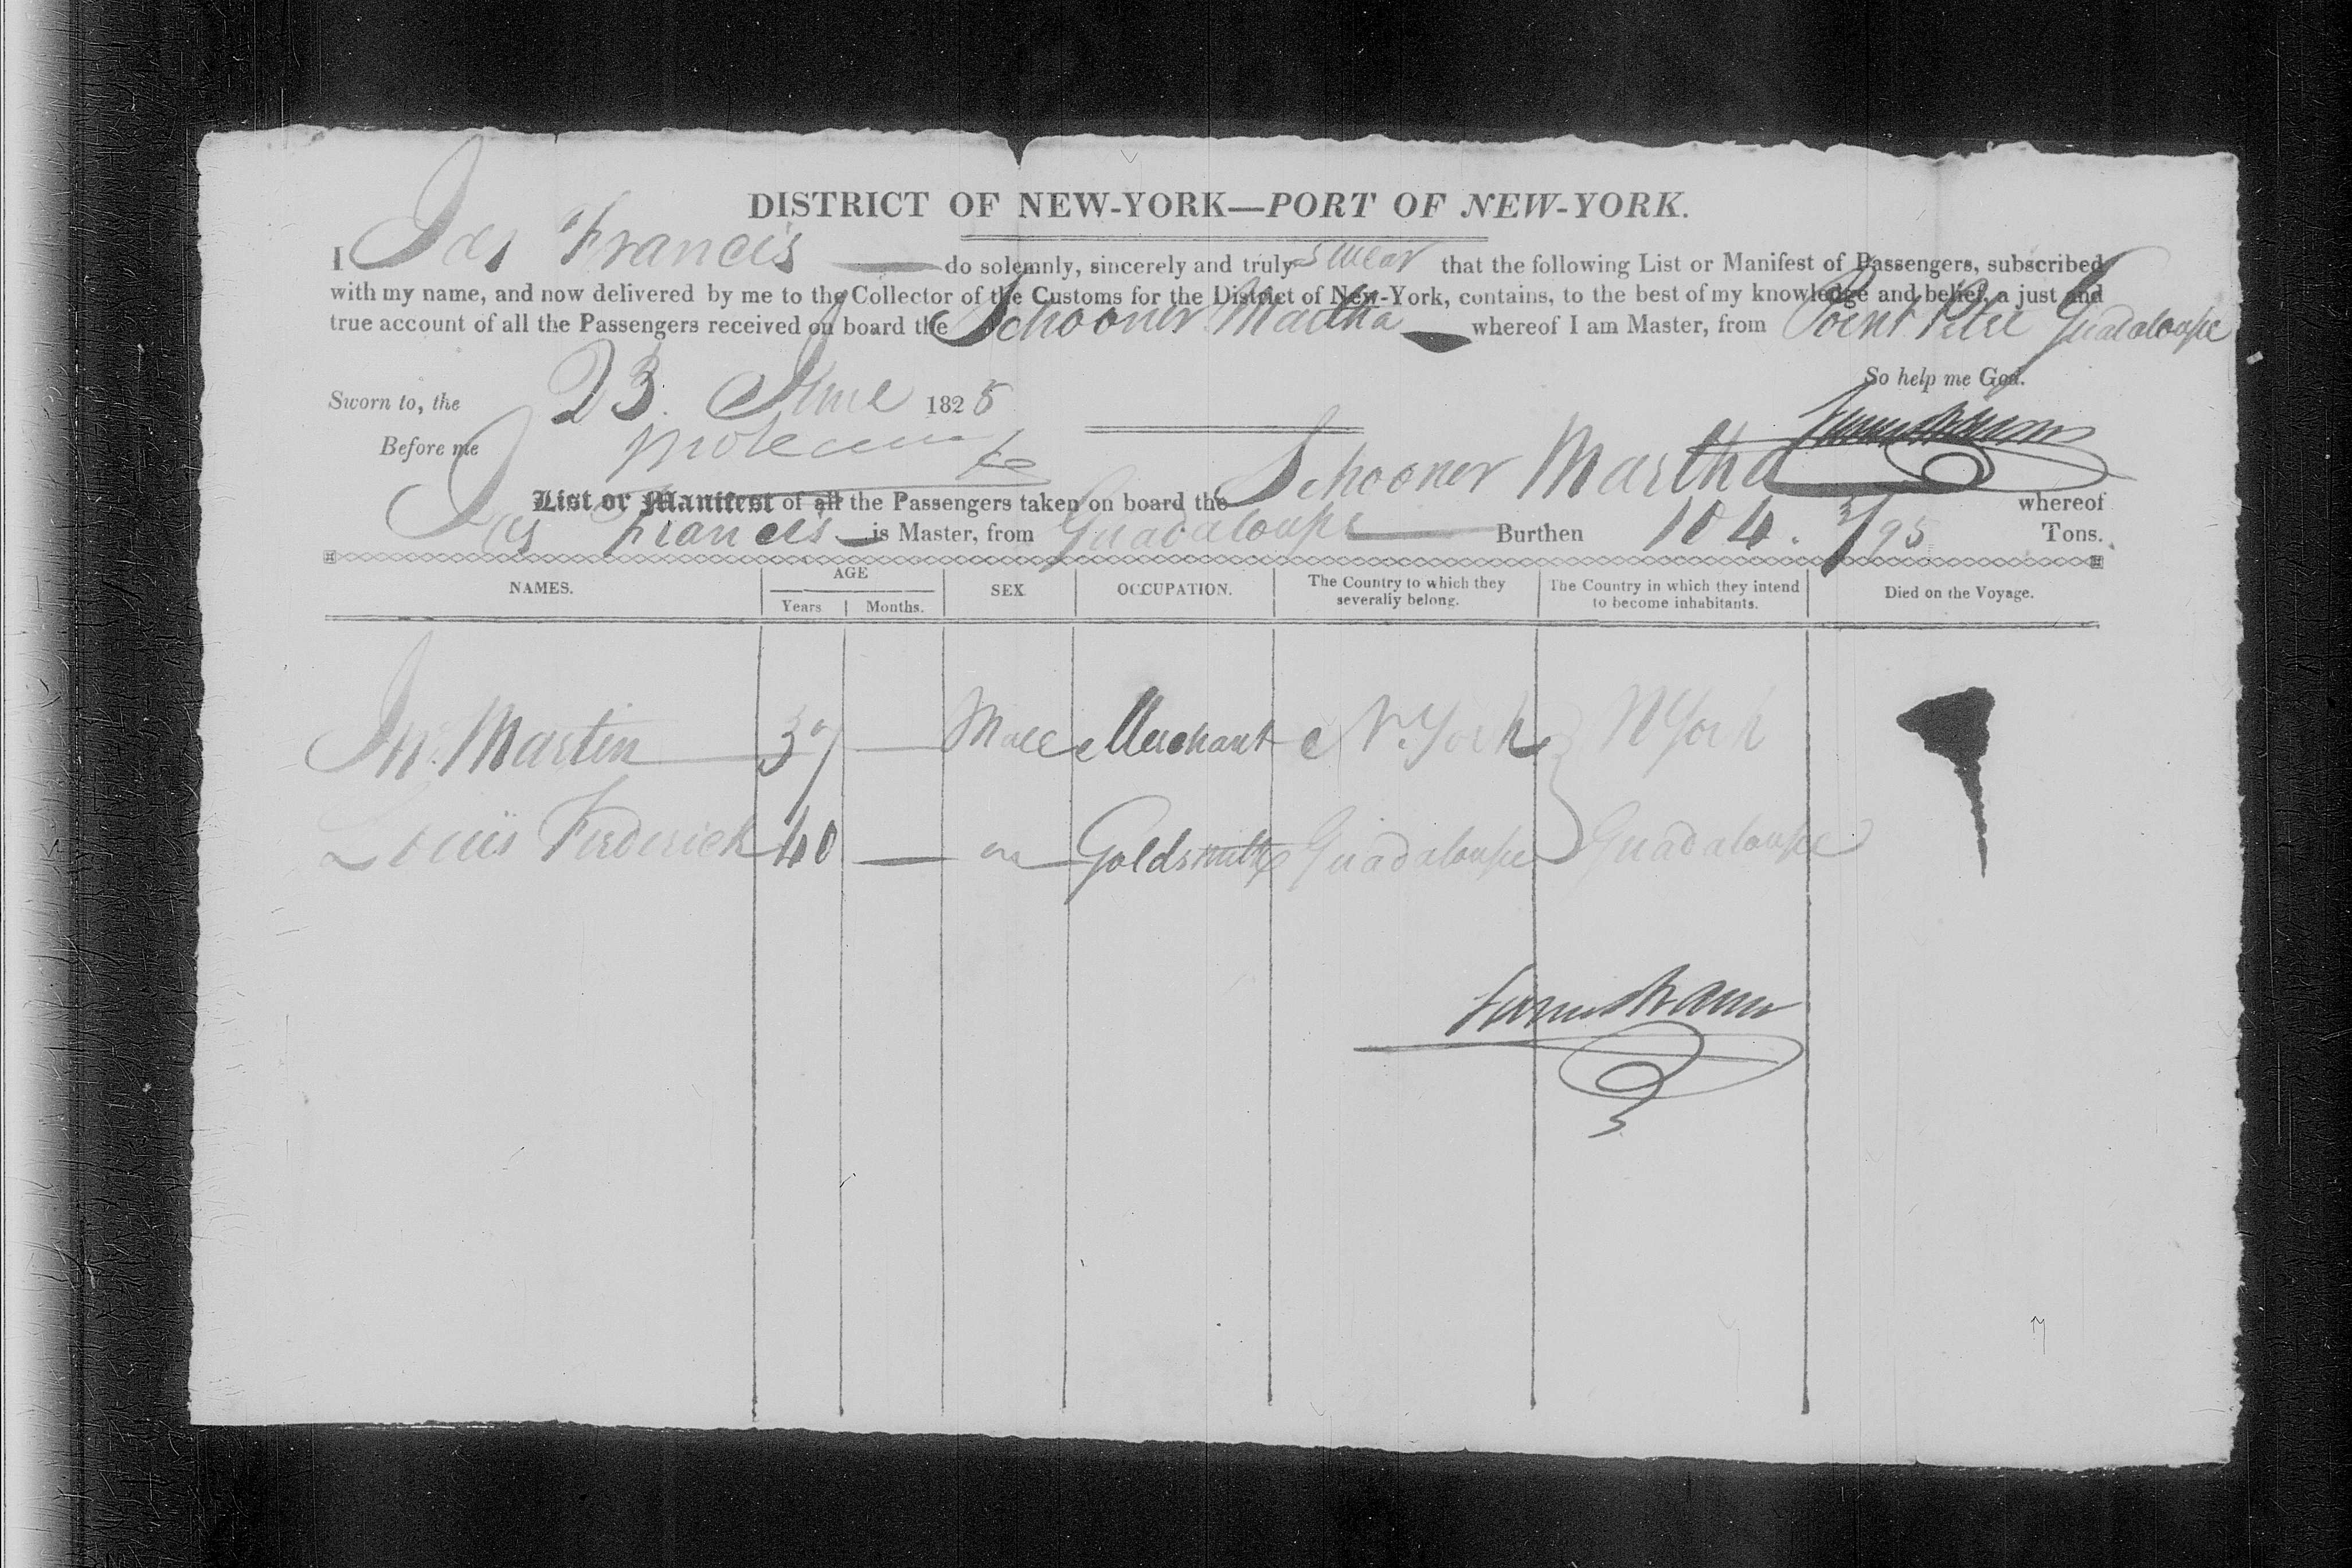 DISTRICT OF NEW-YORK—PORT OF NEW-YORK.
I Jas Francis do solemnly, sincerely and truly swear that the following List or Manifest of Passengers, subscribed
with my name, and now delivered by me to the Collector of the Customs for the District of New-York, contains, to the best of my knowledge and belief, a just and
true account of all the Passengers received on board the Schooner Martha whereof I am Master, from Point Petre Guadaloupe
So help me God.
Sworn to, the 23. June 1828
Before me
List or Manifest of all the Passengers taken on board the Schooner Martha whereof
Jas Francis is Master, from Guadaloupe Burthen 104. 3/95 Tons.
NAMES. AGE Years Months. SEX OCCUPATION. The Country to which they severally belong. The Country in which they intend to become inhabitants. Died on the Voyage.
Martin 37 Male Merchant N. York N York
Louis Frederick 40 Goldsmith Guadaloupe Guadaloupe